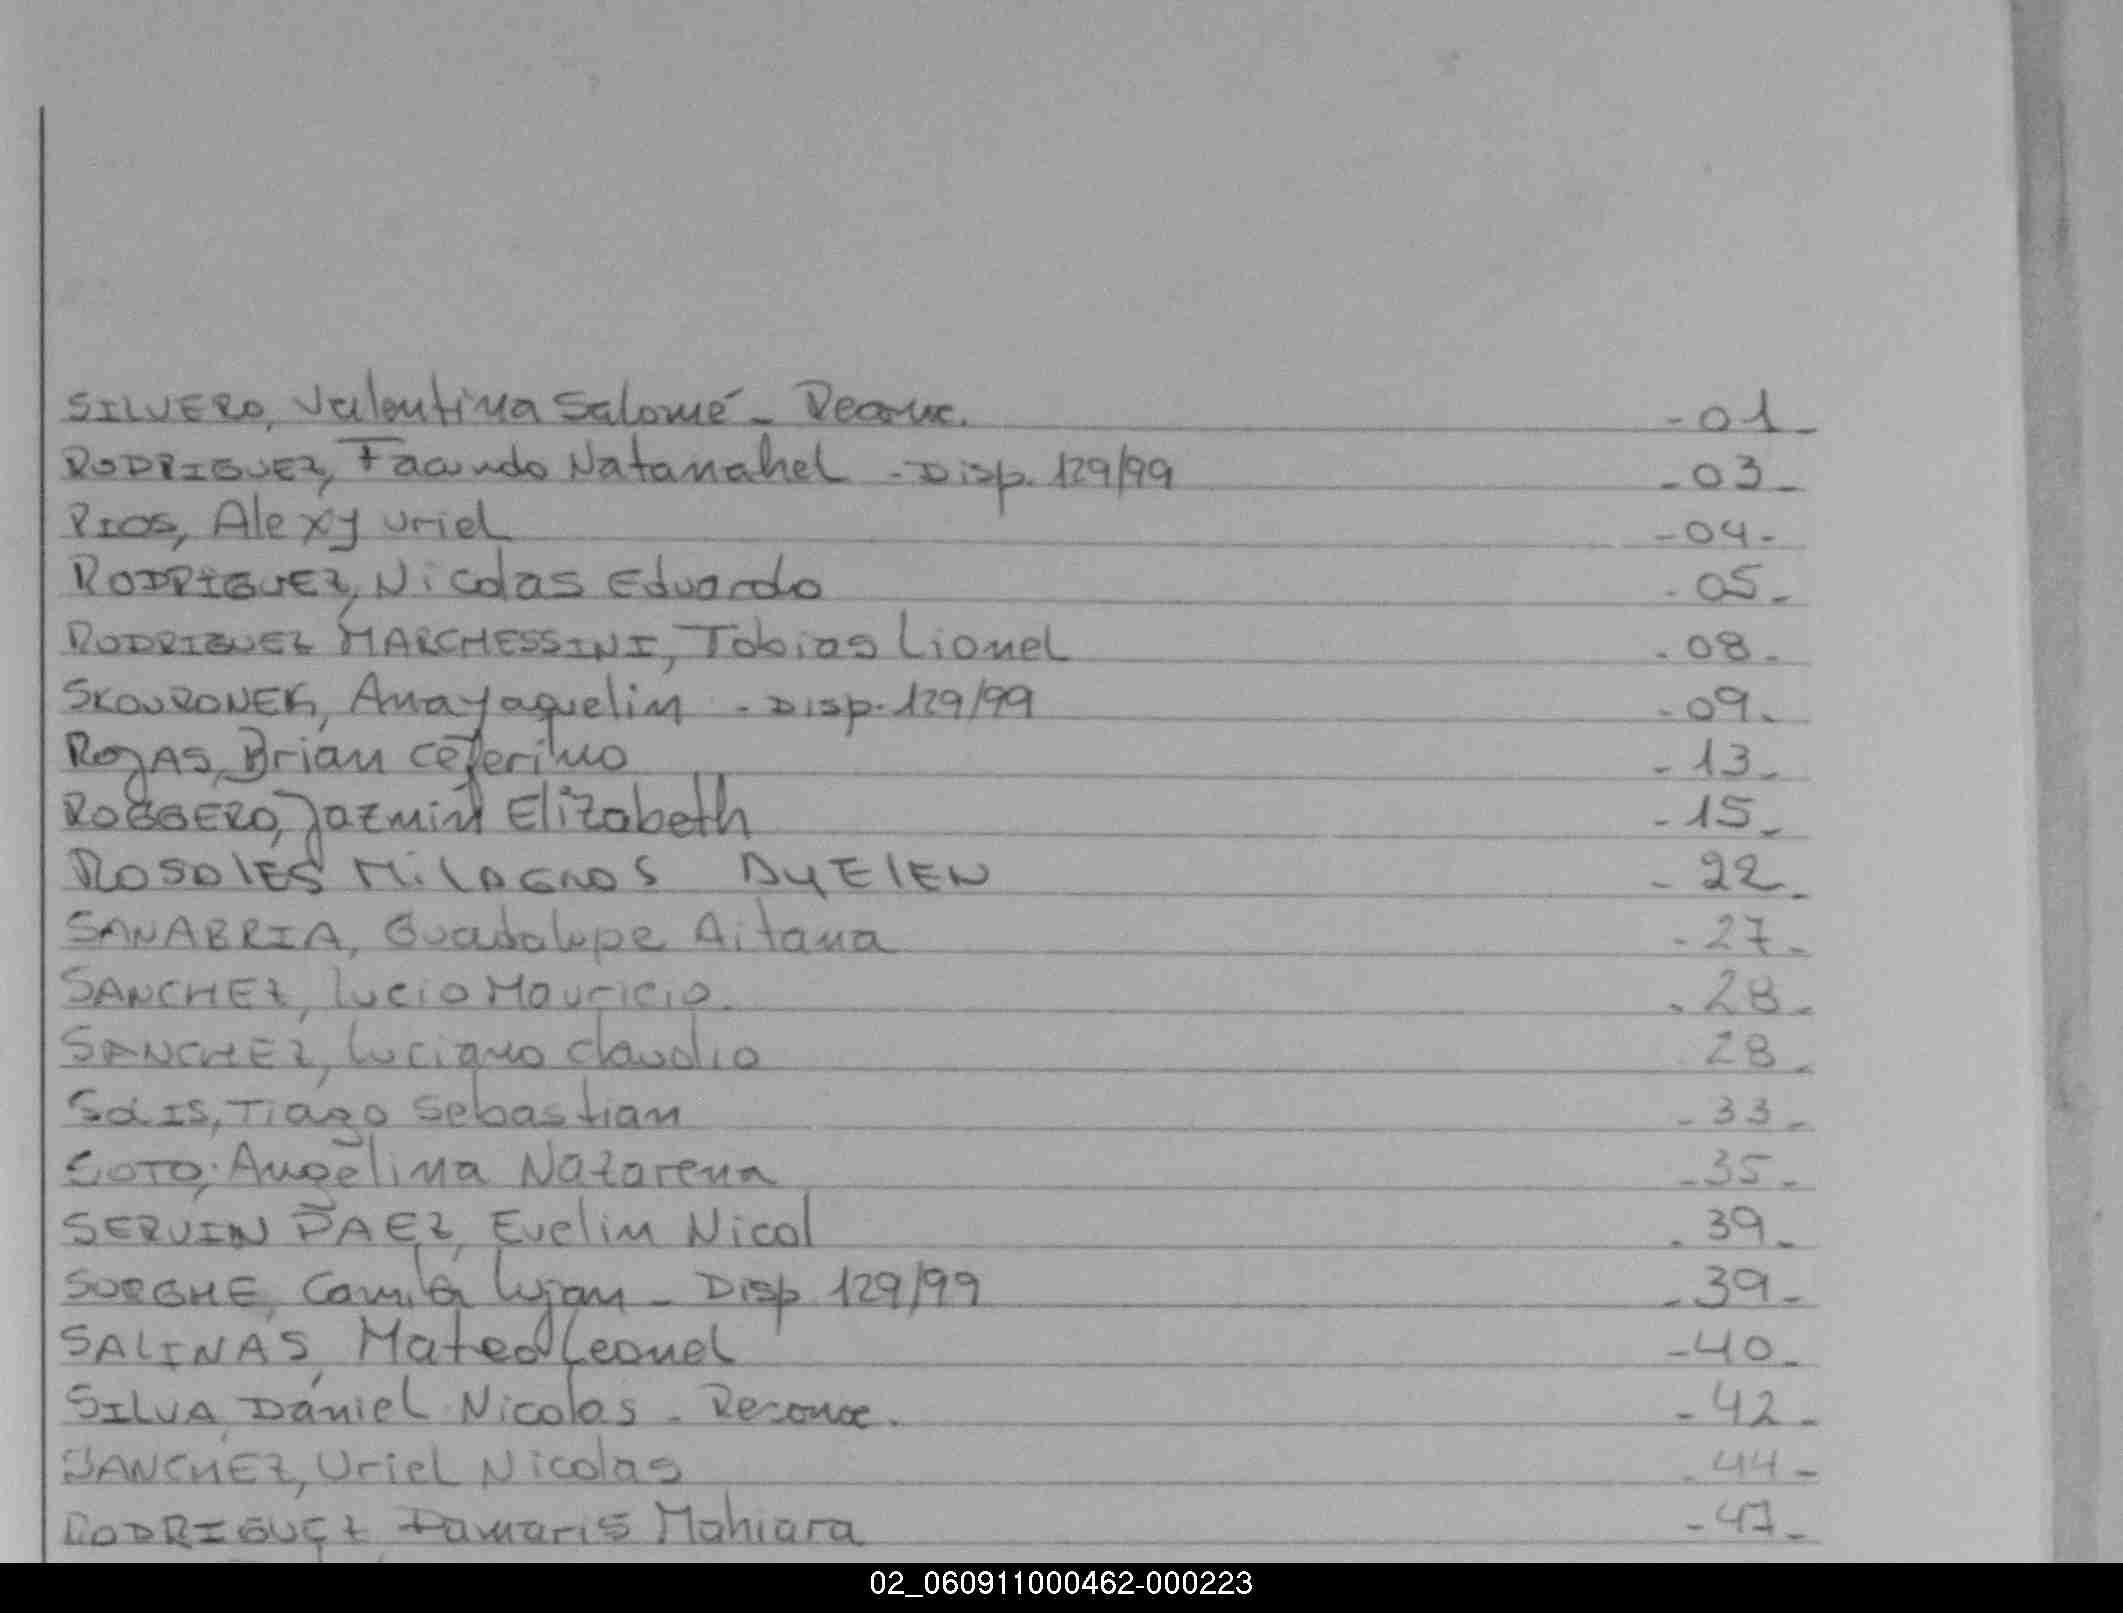 SILVERO, Valentina Salomé - Reconc. -01-
RODRIGUEZ, Facundo Natanahel - Disp. 129/99 -03-
RIOS, Alexy Uriel -04-
RODRIGUEZ, Nicolas Eduardo -05-
RODRIGUEZ MARCHESSINI, Tobias Lionel -08-
SKOVRONEK, Ana Yaquelin - Disp. 129/99 -09-
ROJAS, Brian Ceferino -13-
ROGGERO, Jazmin Elizabeth -15-
ROSALES MILAGROS AYELEN -22-
SANABRIA, Guadalupe Aitana -27-
SANCHEZ, Lucio Mauricio. -28-
SANCHEZ, Luciano Claudio 28-
SOLIS, Tiago Sebastian -33-
SOTO, Angelina Nazarena -35-
SERVIN PAEZ, Evelin Nicol -39-
SORGHE, Camila Lujan - Disp 129/99 -39-
SALINAS, Mateo Leonel -40-
SILVA, Daniel Nicolas - Reconoc. -42-
SANCHEZ, Uriel Nicolas -44-
RODRIGUEZ Damaris Mahiara -47-
02_060911000462-000223